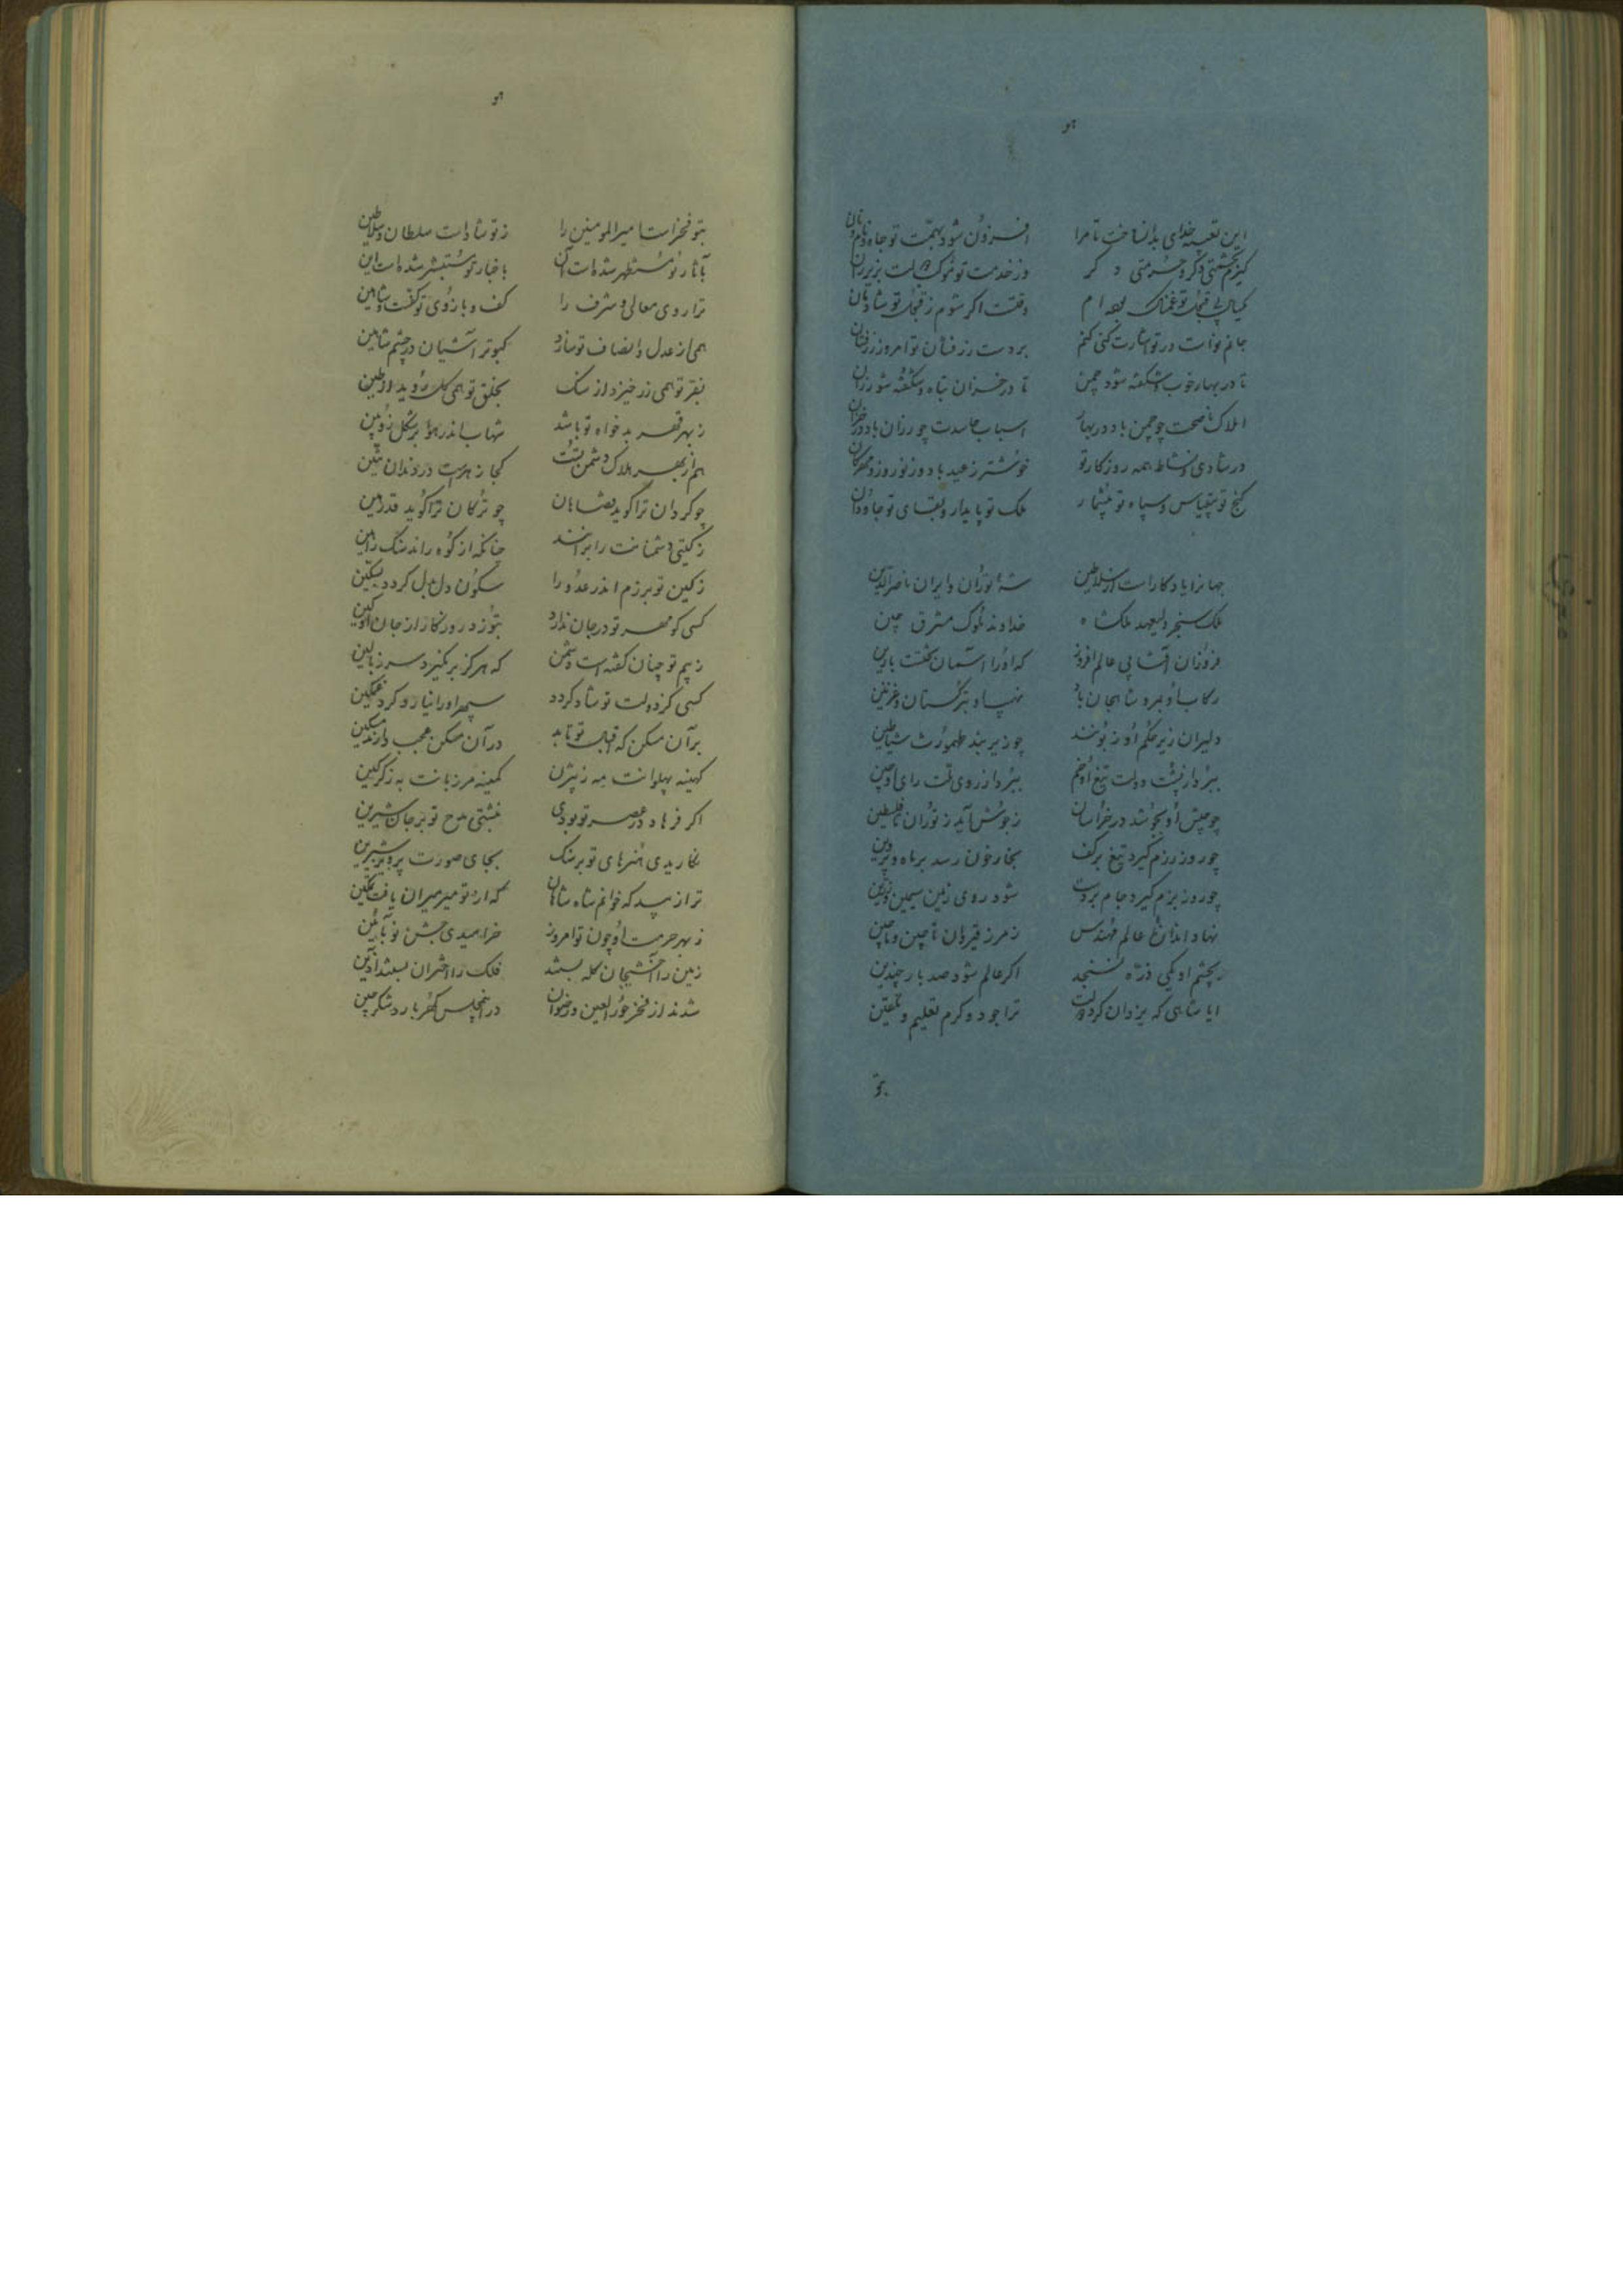 هو
این تعبیه خدای بدان ساخت تا مرا افزون شود بهمت تو جاه و نام و نان
گیرم بخششی دگر و حرمتی دگر وز خدمت تو
یکسال بی تو غمناک بوده ام وقتست اگر شوم ز تو شادمان
جانم تو است در تو اشارت کنی کنم بر دست زرفشان تو امروز زرفشان
تا در بهار خوب شکفته شود چمن تا در خزان تباه و شکفته شود رزان
املاک ناصحت چو چمن باد در بهار اسباب حاسدت چو رزان باد در خزان
در شادی و نشاط همه روزگار تو خوشتر ز عید باد و ز نوروز و مهرکان
گنج تو بیقیاس و سپاه تو بیشمار ملک تو پایدار و بقای تو جاودان
جهانرا یادکار است از سلاطین شه توران و ایران ناصرالدین
ملک سنجر ولیعهد ملکشاه خداوند ملوک مشرق و چین
فروزان آفتابی عالم افروز که او را آسمان تختست یا زین
رکاب او بمرو شاهجان باد نهیب او بترکستان و غزنین
دلیران زیر حکم او زبونند چو زیر بند طهمورث شیاطین
ببرد از پشت دولت تیغ او خم ببرد از روی ملت رای او چین
چو جیش او بجوشد در خراسان ز جوش آید ز توران تا فلسطین
چو روز رزم گیرد تیغ بر کف بخار خون رسد بر ماه و پروین
چو روز بزم گیرد جام بر دست شود روی زمین سیمین و زرین
نهاد اندازه عالم مهندس ز مرز قیروان تا چین و ماچین
بچشم او یکی ذره نسنجد اگر عالم شود صد بار چندین
ایا شاهی که یزدان کرد ترا جود و کرم تعلیم و تلقین
بتو
هو
بتو فخر است امیرالمومنین را ز تو شاد است سلطان سلاطین
بآثار تو مستظهر شده است آن باخبار تو مستبشر شده است این
ترا روی معالی و شرف را کف و بازوی تو
همی از عدل و انصاف تو سازد کبوتر آشیان در چشم شاهین
بفر تو همی زر خیزد از سنگ بخلق تو همی گل روید از طین
ز بهر قهر بدخواه تو باشد شهاب اندر هوا بر شکل زوبین
هم از بهر هلاک دشمن تست کجا زهر است در دندان تنین
چو گردان ترا گوید قضا هان چو ترکان ترا گوید قدر هین
ز گیتی دشمنانت را براند چنانکه از کوه راند سنگ را هین
ز کین تو برزم اندر عدو را سکون دل بدل گردد بسکین
کسی کو مهر تو در جان ندارد بتوزد روزگار از جان او کین
ز بیم تو چنان گشته است دشمن که هرگز برنگیرد سر ز بالین
کسی کز دولت تو شاد گردد سپهر او را نیارد کرد غمگین
بر آن مسکن که اقبال تو تابد در آن مسکن عجب دارند مسکین
کهینه پهلوانت به ز بیژن کمینه مرزبانت به ز گرگین
اگر فرهاد در عصر تو بودی نبشتی مدح تو بر جان شیرین
نگاریدی هنرهای تو بر سنگ بجای صورت پرویز و شیرین
ترا زیبد که خوانم شاه شاهان که از تو میر میران یافت تمکین
ز بهر حرمت او چون تو امروز خرامیدی بجشن نو بآئین
زمین را آخشیجان کله بستند فلک را اختران بستند آذین
شدند از فخر حورالعین و رضوان در این مجلس گهربار و شکرچین